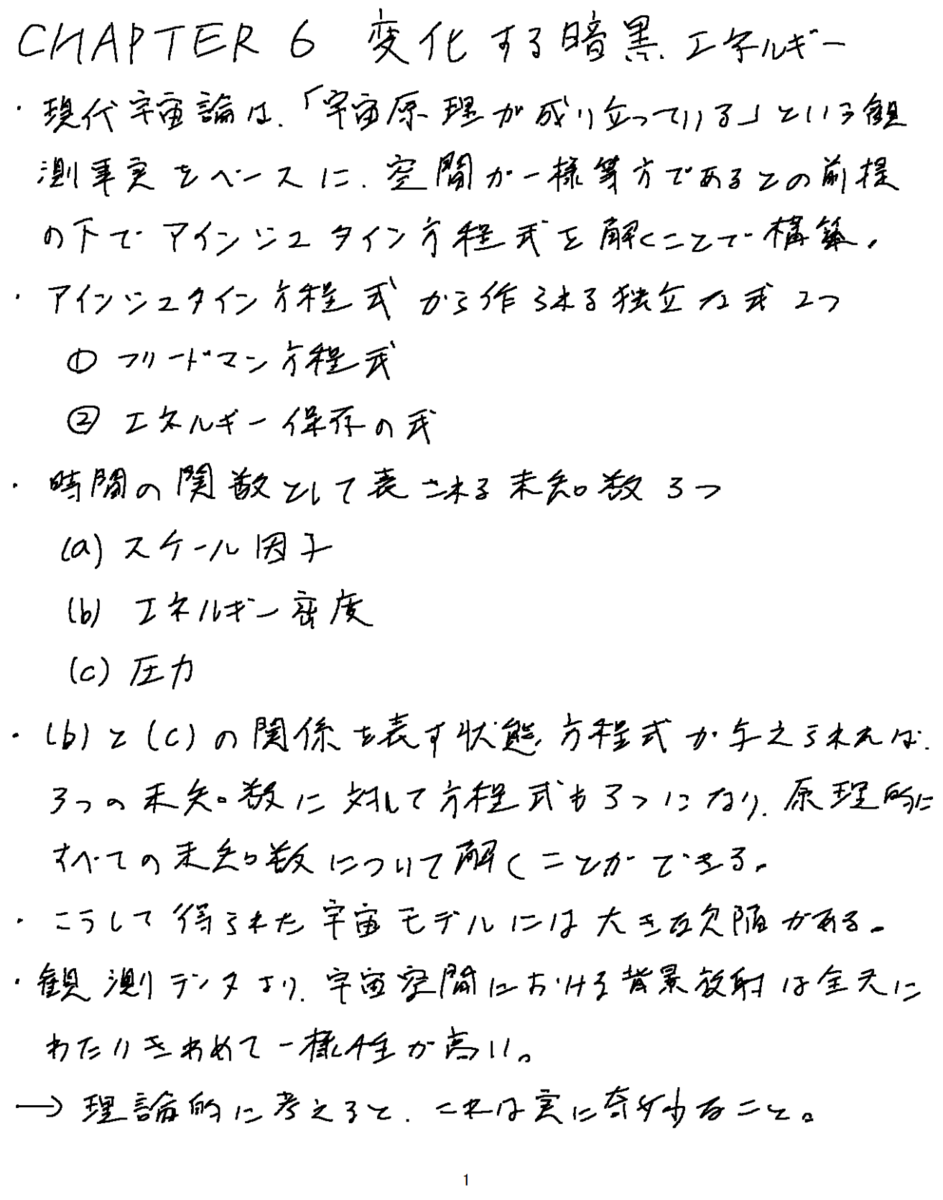 CHAPTER 6 変化する暗黒エネルギー
・現代宇宙論は、「宇宙原理が成り立っている」という観
測事実をベースに、空間が一様等方であるとの前提
の下でアインシュタイン方程式を解くことで構築。
・アインシュタイン方程式から作られる独立な式2つ
① フリードマン方程式
② エネルギー保存の式
・時間の関数として表される未知数3つ
(a) スケール因子
(b) エネルギー密度
(c) 圧力
・(b)と(c)の関係を表す状態方程式が与えられれば、
3つの未知数に対して方程式も3つになり、原理的に
すべての未知数について解くことができる。
・こうして得られた宇宙モデルには大きな欠陥がある。
・観測データより、宇宙空間における背景放射は全天に
わたりきわめて一様性が高い。
→ 理論的に考えると、これは実に奇妙なこと。
1